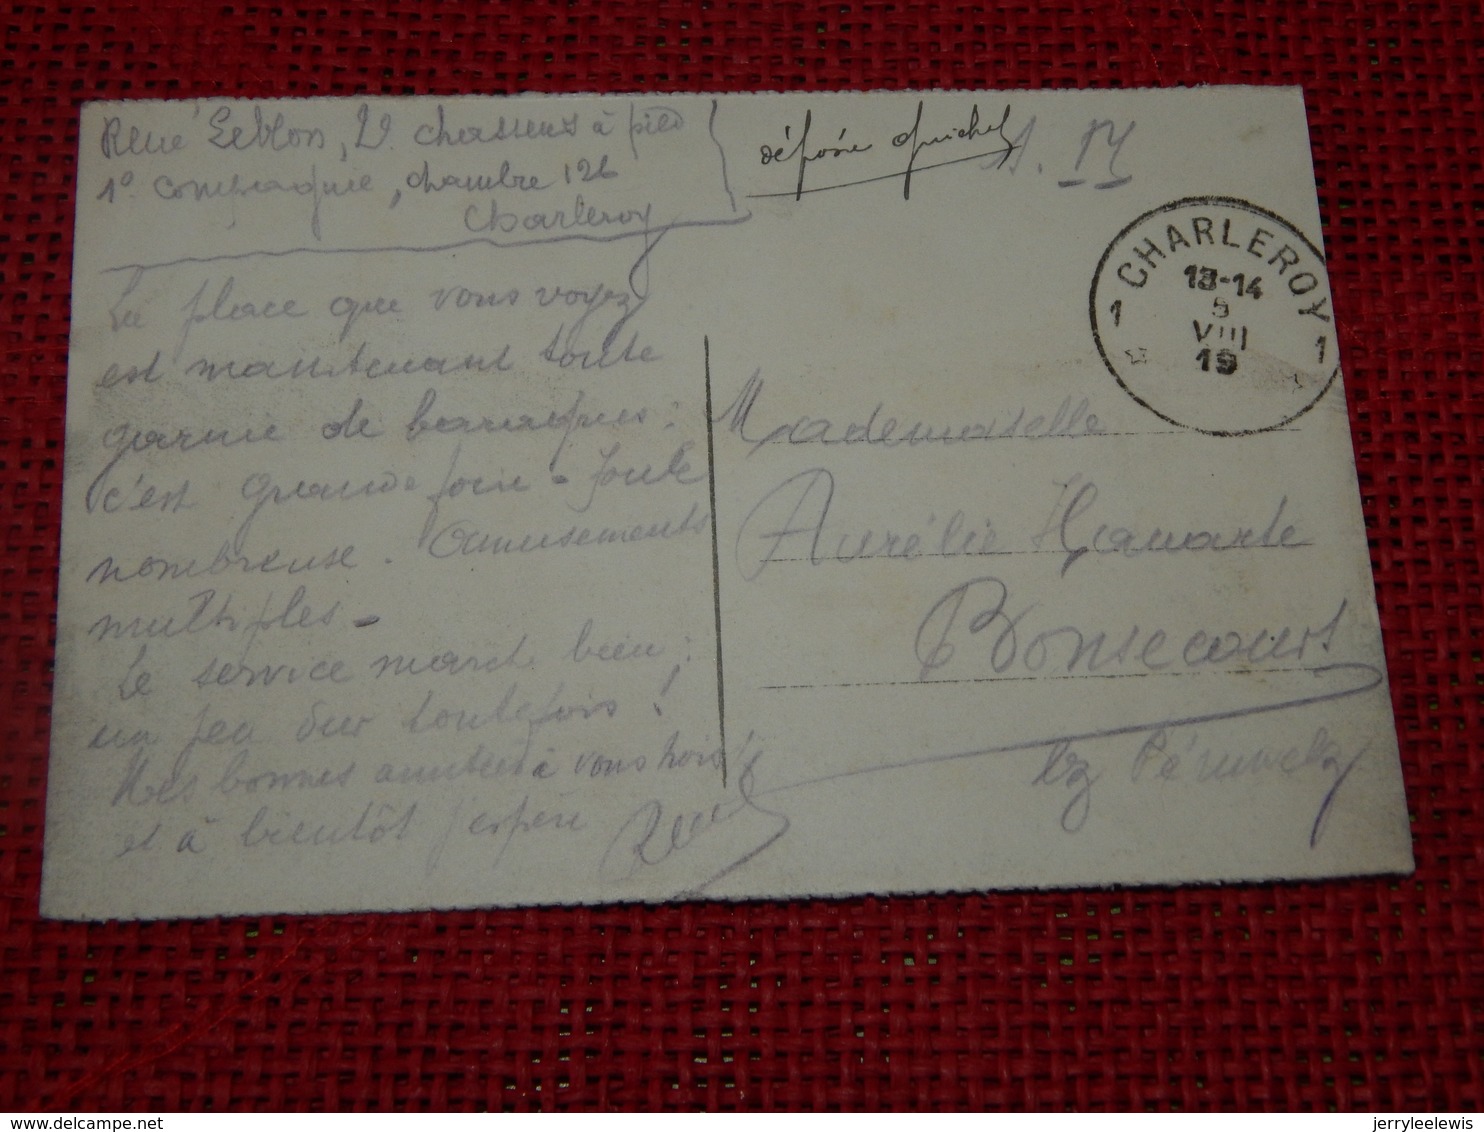 René Leblon, 2e chasseurs à pied
1o compagnie, chambre 126
Charleroy
La place que vous voyez
est maintenant toute
garnie de baraques :
c'est grande foire - foule
nombreuse. Amusements
multiples -
Le service march bien :
un peu dur toutefois !
Mes bonnes amitiés à vous trois
et à bientôt j'espère
René
déposée guichet
S. M.
CHARLEROY
1 1
13-14
5
VIII
19
Mademoiselle
Aurélie
Bonsecours
lez Péruwelz
jerryleelewis